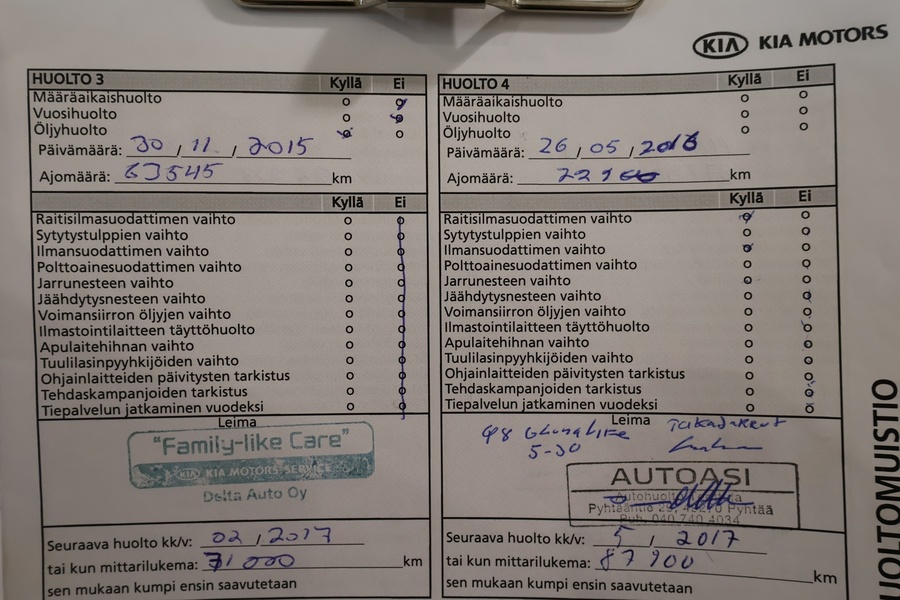 KIA KIA MOTORS
HUOLTO 3 Kyllä Ei
Määräaikaishuolto
Vuosihuolto
Öljyhuolto
Päivämäärä: 30 / 11 / 2015
Ajomäärä: 63545 km
Kyllä Ei
Raitisilmasuodattimen vaihto
Sytytystulppien vaihto
Ilmansuodattimen vaihto
Polttoainesuodattimen vaihto
Jarrunesteen vaihto
Jäähdytysnesteen vaihto
Voimansiirron öljyjen vaihto
Ilmastointilaitteen täyttöhuolto
Apulaitehihnan vaihto
Tuulilasinpyyhkijöiden vaihto
Ohjainlaitteiden päivitysten tarkistus
Tehdaskampanjoiden tarkistus
Tiepalvelun jatkaminen vuodeksi
Leima
"Family-like Care"
KIA KIA MOTORS SERVICE
Delta Auto Oy
Seuraava huolto kk/v: 02 / 2017
tai kun mittarilukema: 71 000 km
sen mukaan kumpi ensin saavutetaan
HUOLTO 4 Kyllä Ei
Määräaikaishuolto
Vuosihuolto
Öljyhuolto
Päivämäärä: 26 / 05 / 2016
Ajomäärä: km
Kyllä Ei
Raitisilmasuodattimen vaihto
Sytytystulppien vaihto
Ilmansuodattimen vaihto
Polttoainesuodattimen vaihto
Jarrunesteen vaihto
Jäähdytysnesteen vaihto
Voimansiirron öljyjen vaihto
Ilmastointilaitteen täyttöhuolto
Apulaitehihnan vaihto
Tuulilasinpyyhkijöiden vaihto
Ohjainlaitteiden päivitysten tarkistus
Tehdaskampanjoiden tarkistus
Tiepalvelun jatkaminen vuodeksi
Leima
5-30
AUTOASI
Pyhtää
Puh. 040 740 4034
Seuraava huolto kk/v: 5 / 2017
tai kun mittarilukema: 87 900 km
sen mukaan kumpi ensin saavutetaan
UOLTOMUISTIO